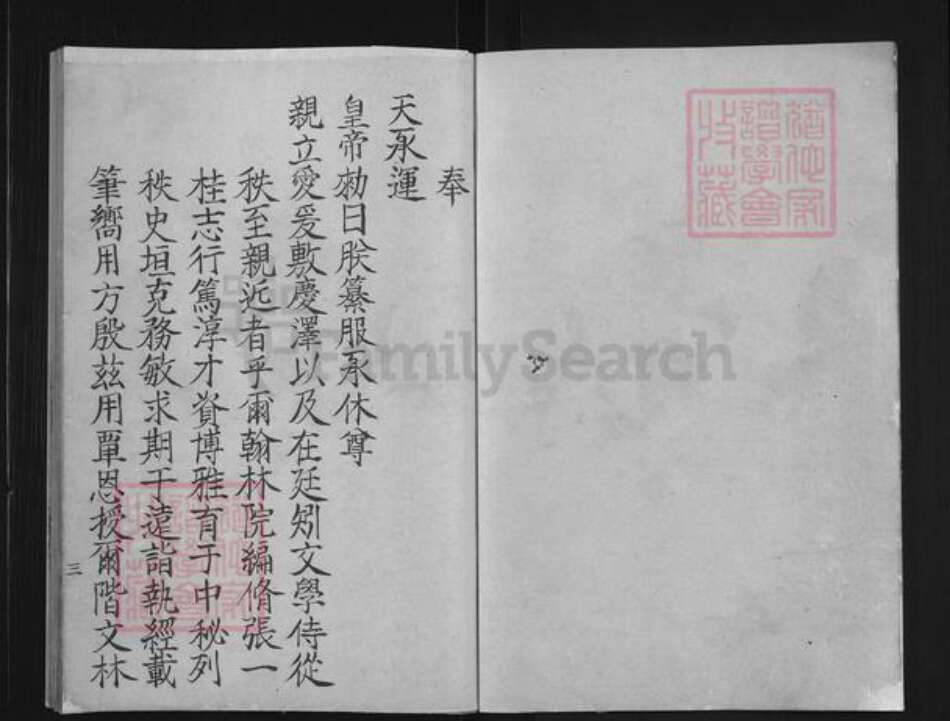 奉
天承運
皇帝勑曰朕纂服承休尊
親立愛爰敷慶澤以及在廷矧文學侍從
秩至親近者乎爾翰林院編脩張一
桂志行篤淳才資博雅有于中秘列
秩史垣克務敏求期于遠詣執經載
筆嚮用方殷茲用覃恩授爾階文林
三
FamilySearch